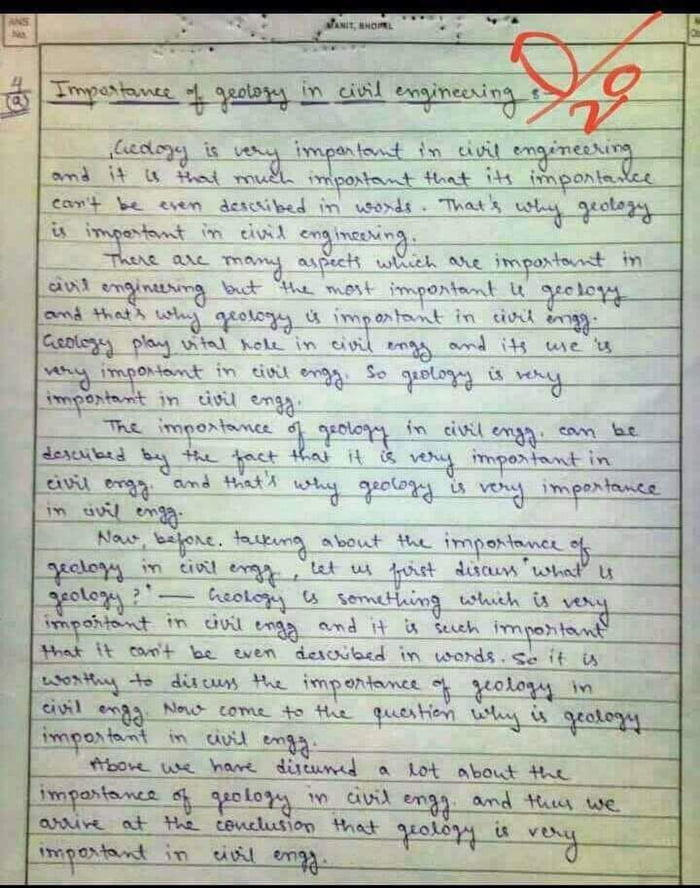 ANS No.
MANIT, BHOPAL
0/20
4
(a)
Importance of geology in civil engineering :-
Geology is very important in civil engineering
and it is that much important that its importance
can't be even described in words. That's why geology
is important in civil engineering.
There are many aspects which are important in
civil engineering but the most important is geology
and that's why geology is important in civil engg.
Geology play vital role in civil engg and its use is
very important in civil engg. So geology is very
important in civil engg.
The importance of geology in civil engg. can be
described by the fact that it is very important in
civil engg. and that's why geology is very importance
in civil engg.
Now, before. talking about the importance of
geology in civil engg, let us first discuss "what is
geology?" — Geology is something which is very
important in civil engg and it is such important
that it can't be even described in words. So it is
worthy to discuss the importance of geology in
civil engg. Now come to the question why is geology
important in civil engg.
Above we have discussed a lot about the
importance of geology in civil engg. and thus we
arrive at the conclusion that geology is very
important in civil engg.